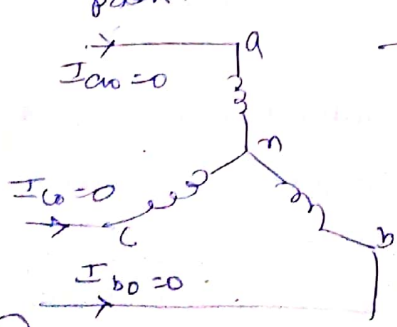 a
I_{a0} = 0
n
I_{c0} = 0
c
b
I_{b0} = 0